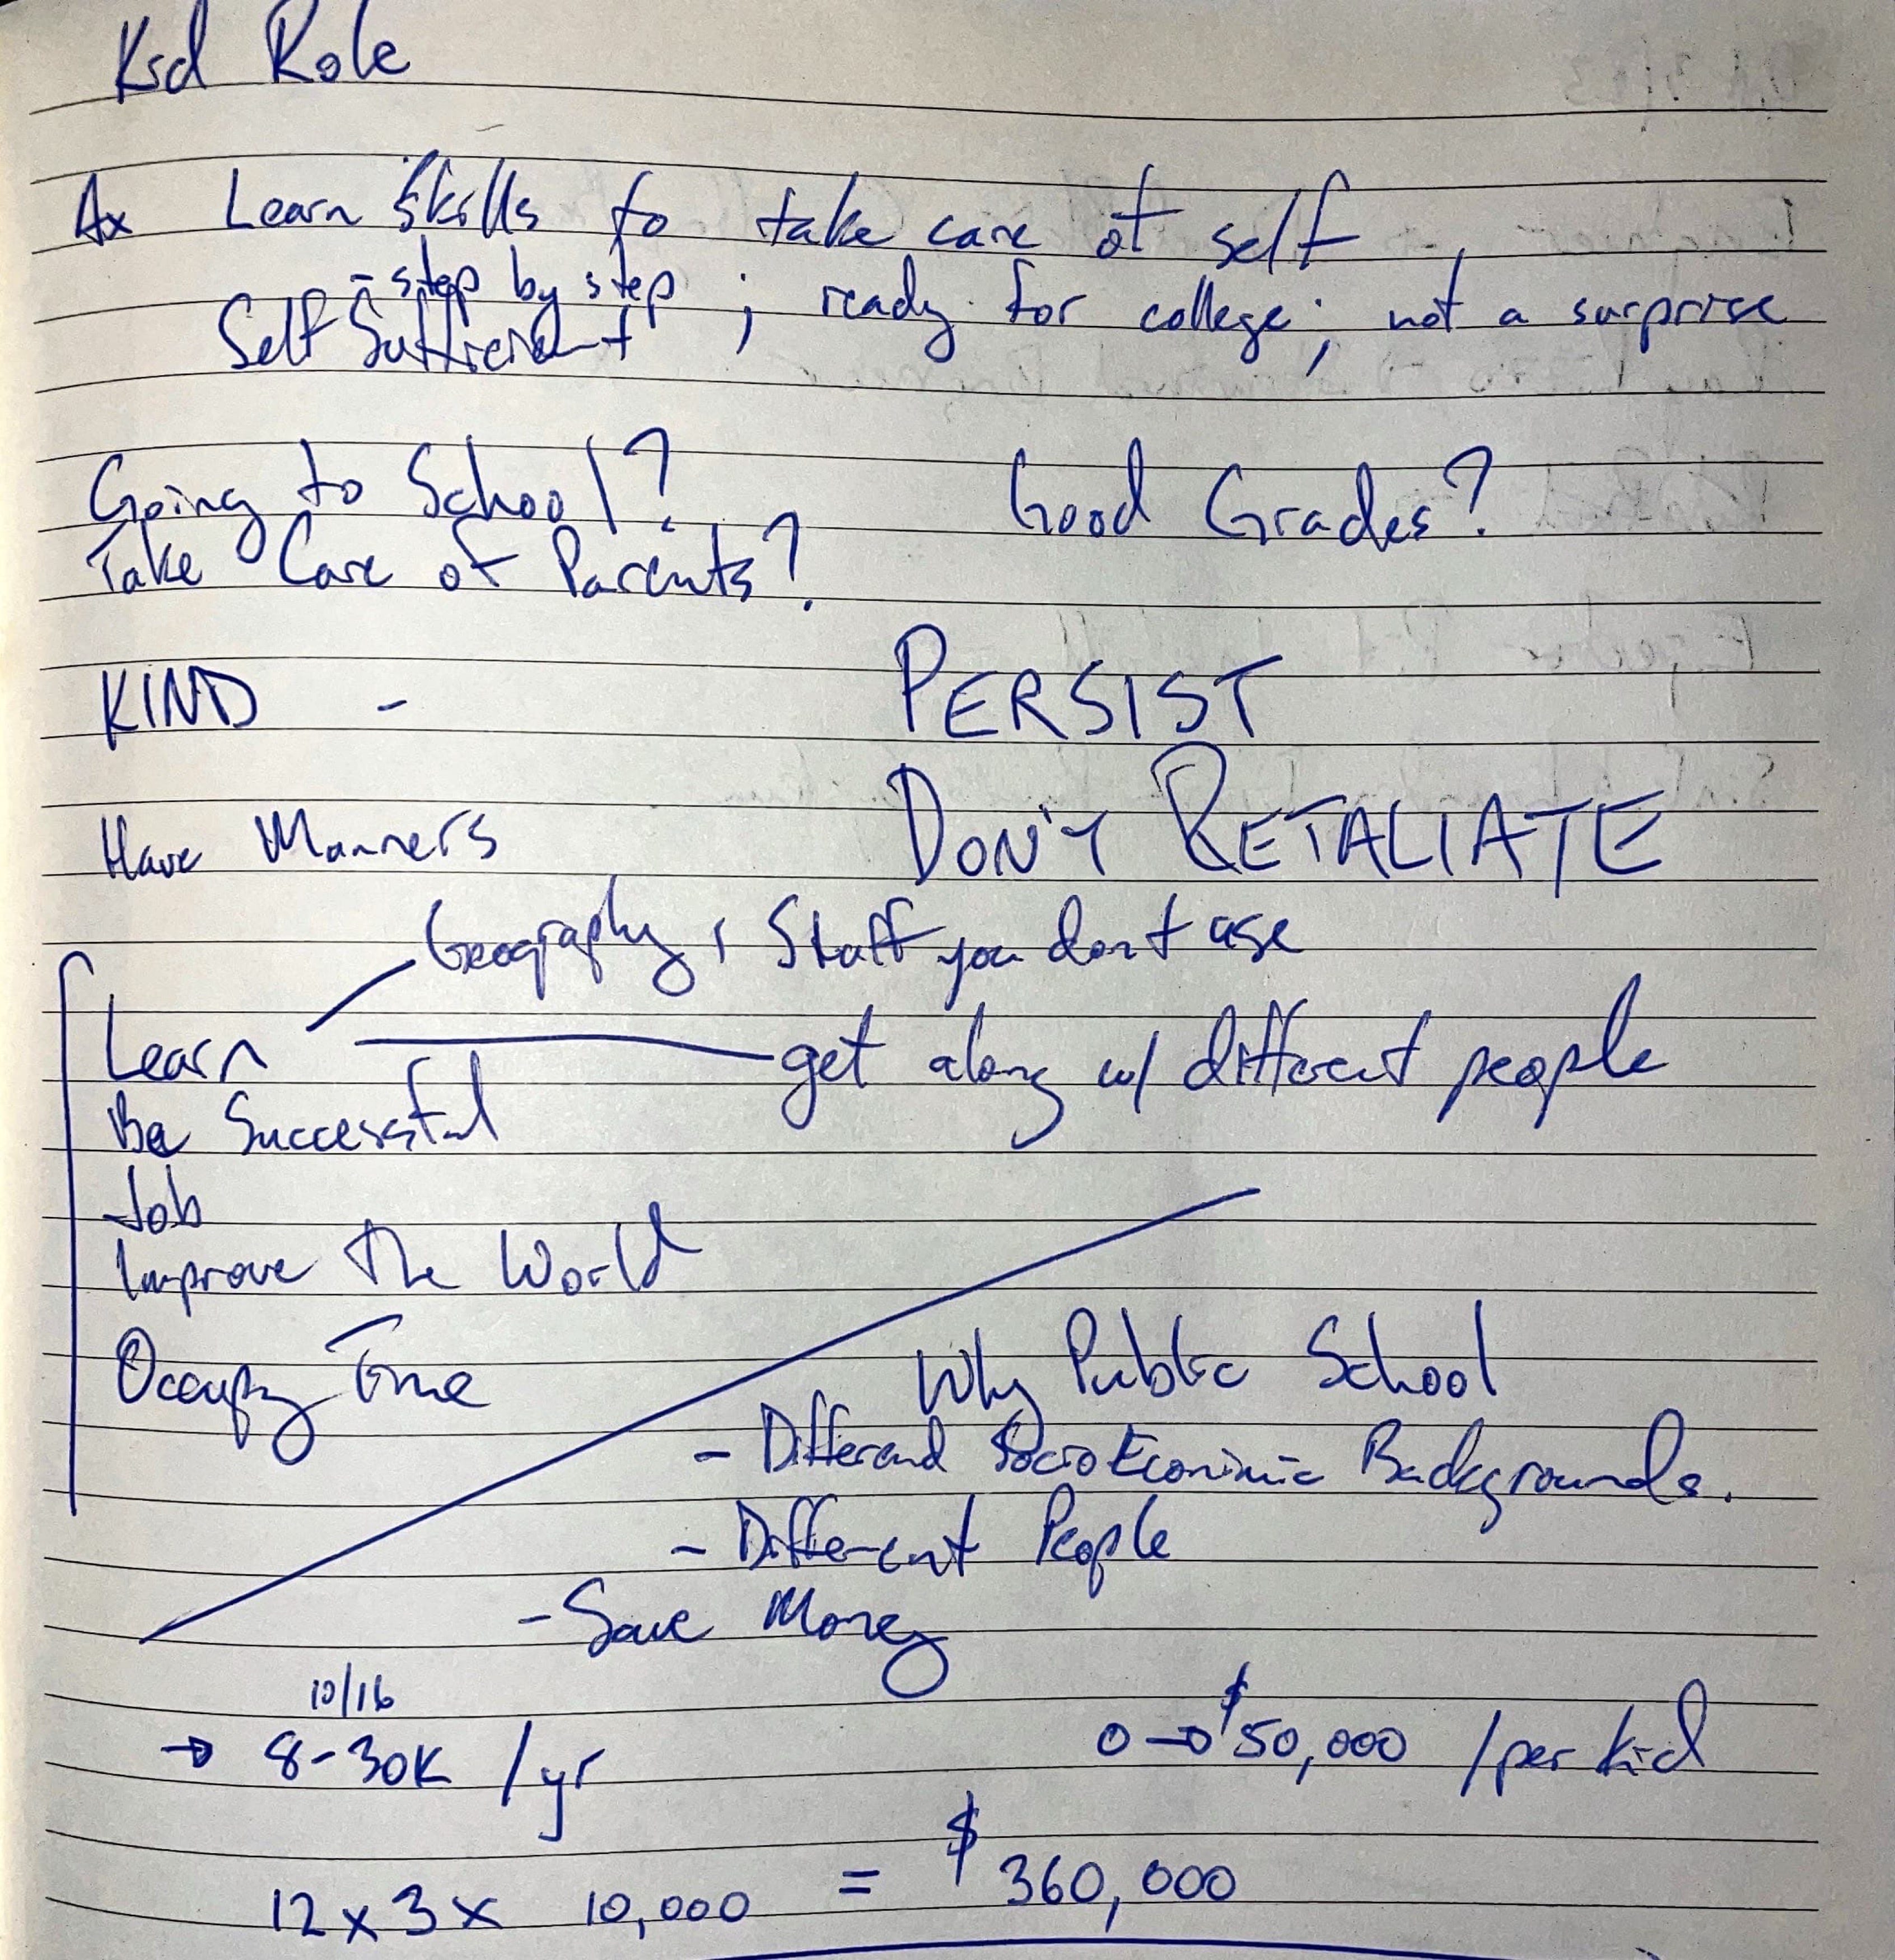 Kid Role
Ax Learn Skills to take care of self,
- step by step
Self Sufficient ; ready for college; not a surprise
Going to School? Good Grades?
Take Care of Parents?
KIND - PERSIST
Have Manners DON'T RETALIATE
Geography & Stuff you dont use
Learn get along w/ different people
Be Successful
Job
Improve The World
Occupy Time
Why Public School
- Differend SocioEconimic Backgrounds.
- Different People
- Save Money
10/16
→ 8-30K /yr 0 → $50,000 /per kid
12 x 3 x 10,000 = $360,000